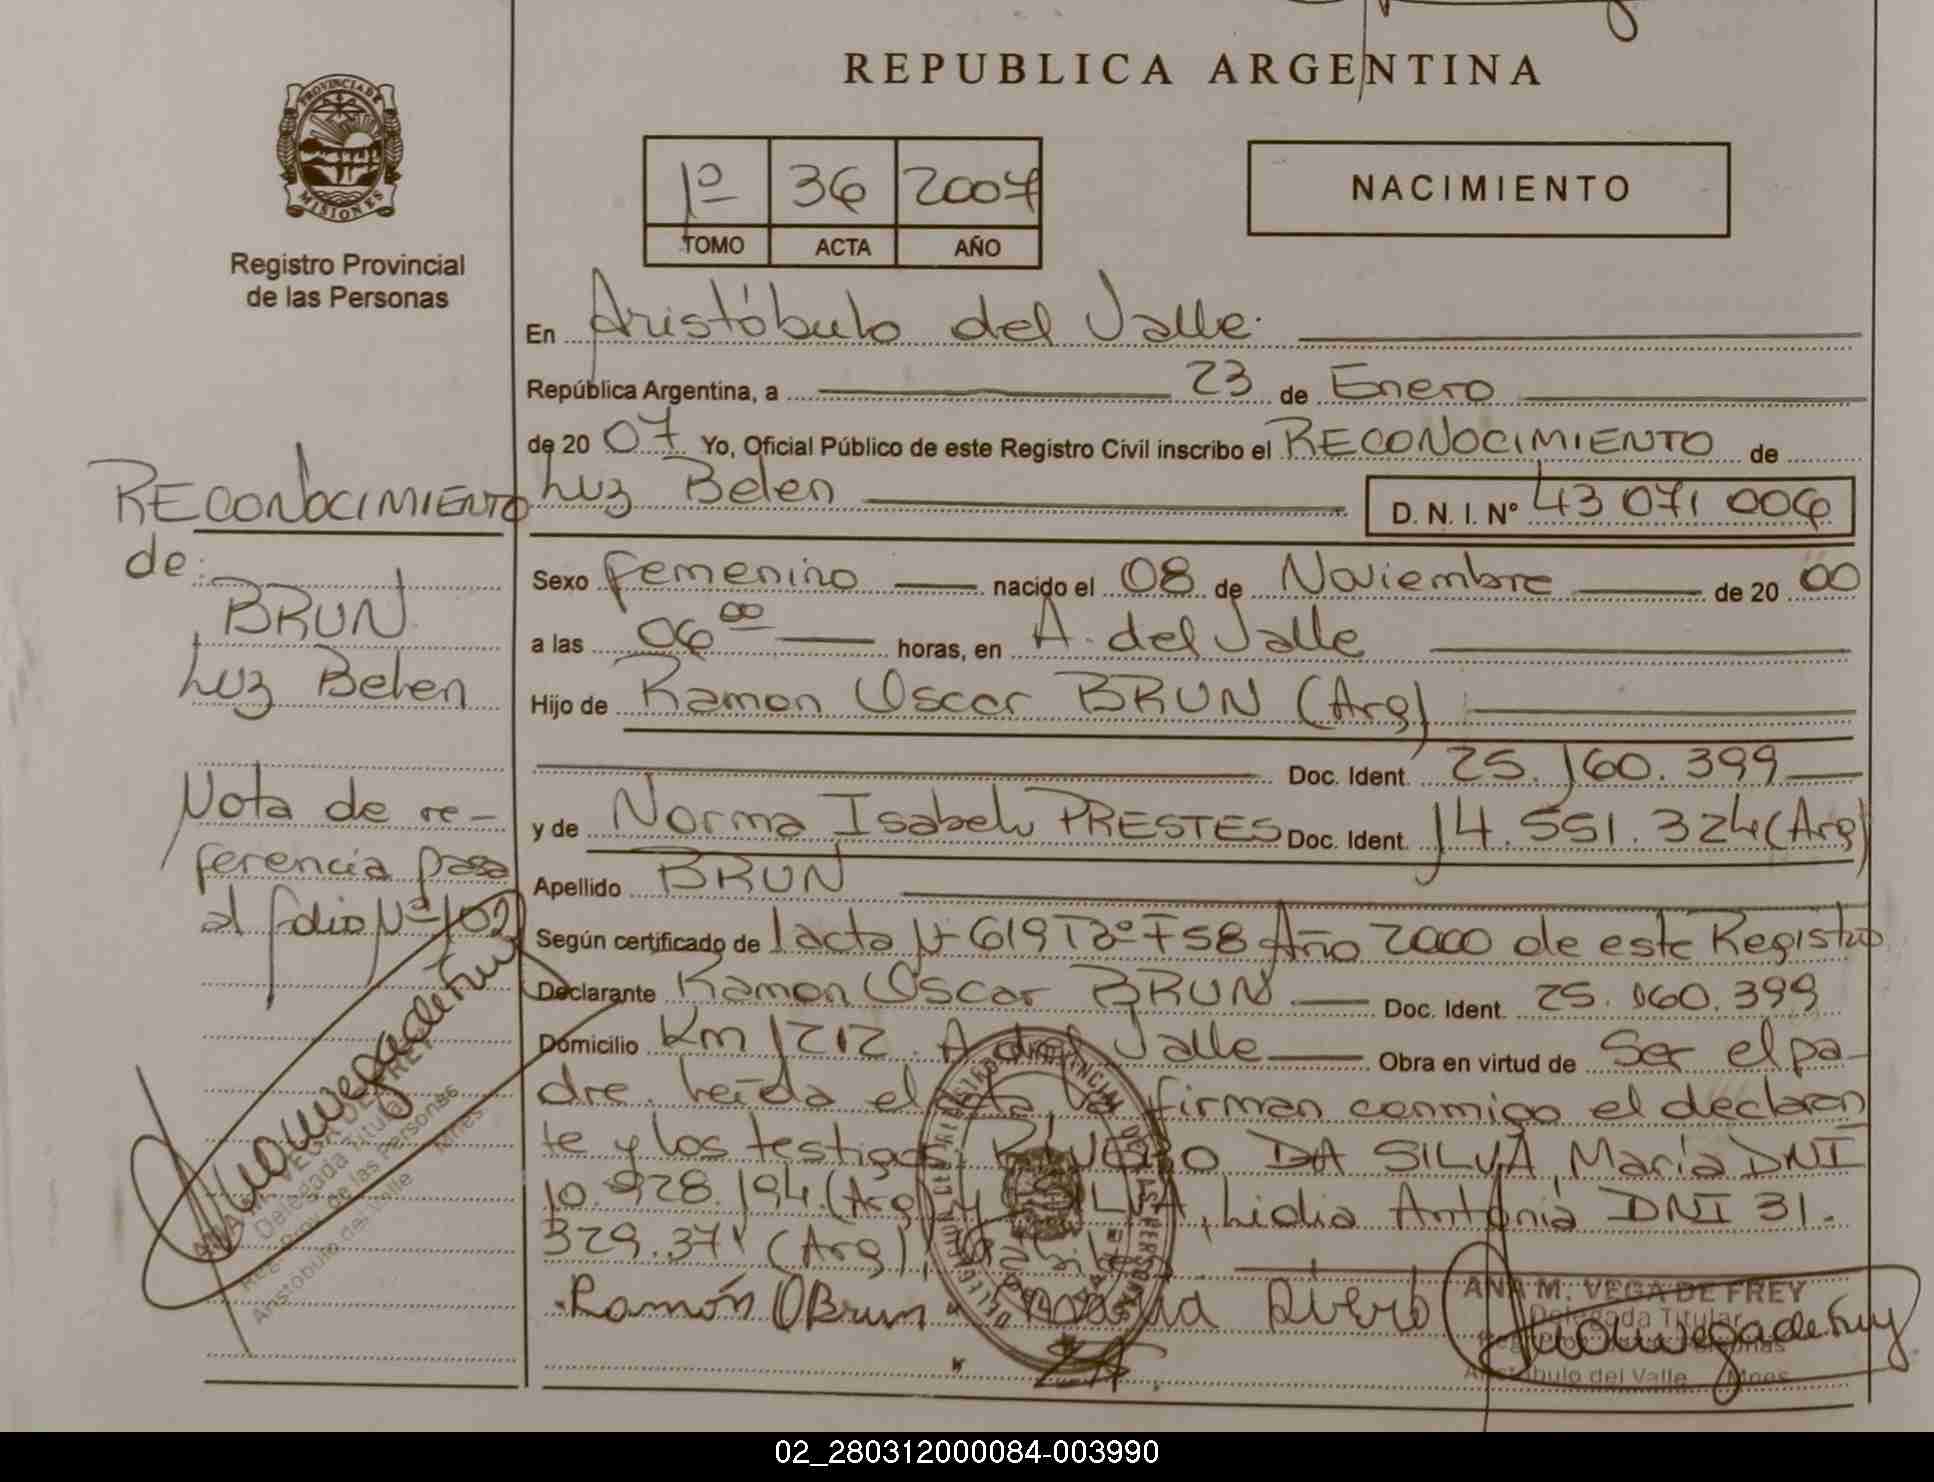 REPUBLICA ARGENTINA
PROVINCIA DE
MISIONES
Registro Provincial
de las Personas
1º 36 2007
TOMO ACTA AÑO
NACIMIENTO
En Aristóbulo del Valle.
República Argentina, a 23 de Enero
de 20 07 Yo, Oficial Público de este Registro Civil inscribo el RECONOCIMIENTO de
Luz Belen D. N. I. Nº 43 071 006
Sexo Femenino nacido el 08 de Noviembre de 20 00
a las 06 00 horas, en A. del Valle
Hijo de Ramon Oscar BRUN (Arg)
Doc. Ident. 25.160.399
y de Norma Isabel PRESTES Doc. Ident. 14.551.324 (Arg)
Apellido BRUN
Según certificado de acta Nº 619 Tº F 58 Año 2000 de este Registro
Declarante Ramon Oscar BRUN Doc. Ident. 25.160.399
Domicilio Km 1212. A. del Valle Obra en virtud de Ser el pa-
dre. Leída el acta, la firman conmigo el declaran
te y los testigos: DA SILVA, María DNI
10.928.194 (Arg) y SILVA, Lidia Antonia DNI 31.
329.371 (Arg)
Ramón O Brun
ANA M. VEGA DE FREY
Delegada Titular
Aristóbulo del Valle Mnes
RECONOCIMIENTO
de:
BRUN
Luz Belen
Nota de re-
ferencia pasa
al folio Nº 102
ANA M. VEGA DE FREY
Delegada Titular
Reg. Prov. de las Personas
Aristóbulo del Valle Mnes
02_280312000084-003990